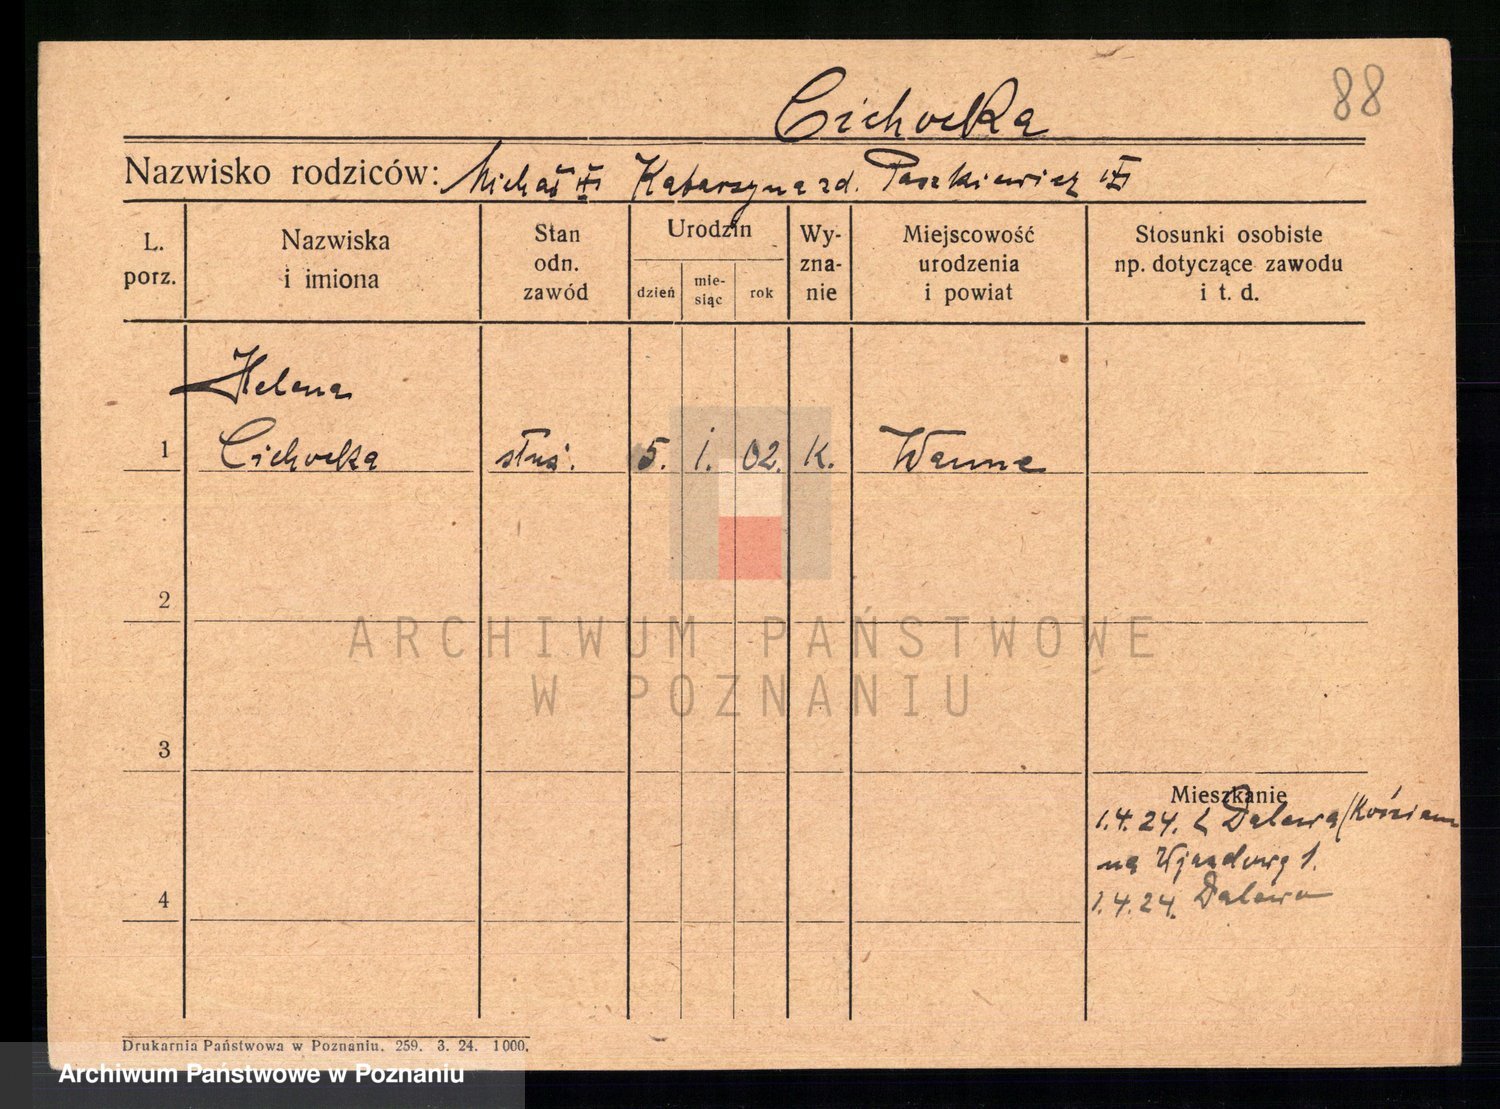 88
Cichocka
Nazwisko rodziców: Michał Katarzyna zd. Paszkiewicz
L. porz.
Nazwiska i imiona
Stan odn. zawód
Urodzin
dzień
mie-
siąc
rok
Wy-
zna-
nie
Miejscowość urodzenia i powiat
Stosunki osobiste np. dotyczące zawodu i t. d.
Helena
1 Cichocka służ. 5. 1. 02. K. Wanne
2
ARCHIWUM PAŃSTWOWE
W POZNANIU
3
Mieszkanie
1.4.24. z Dalewa (Kościan
na Wjazdową 1.
4
1.4.24. Dalewo
Drukarnia Państwowa w Poznaniu. 259. 3. 24. 1000.
Archiwum Państwowe w Poznaniu